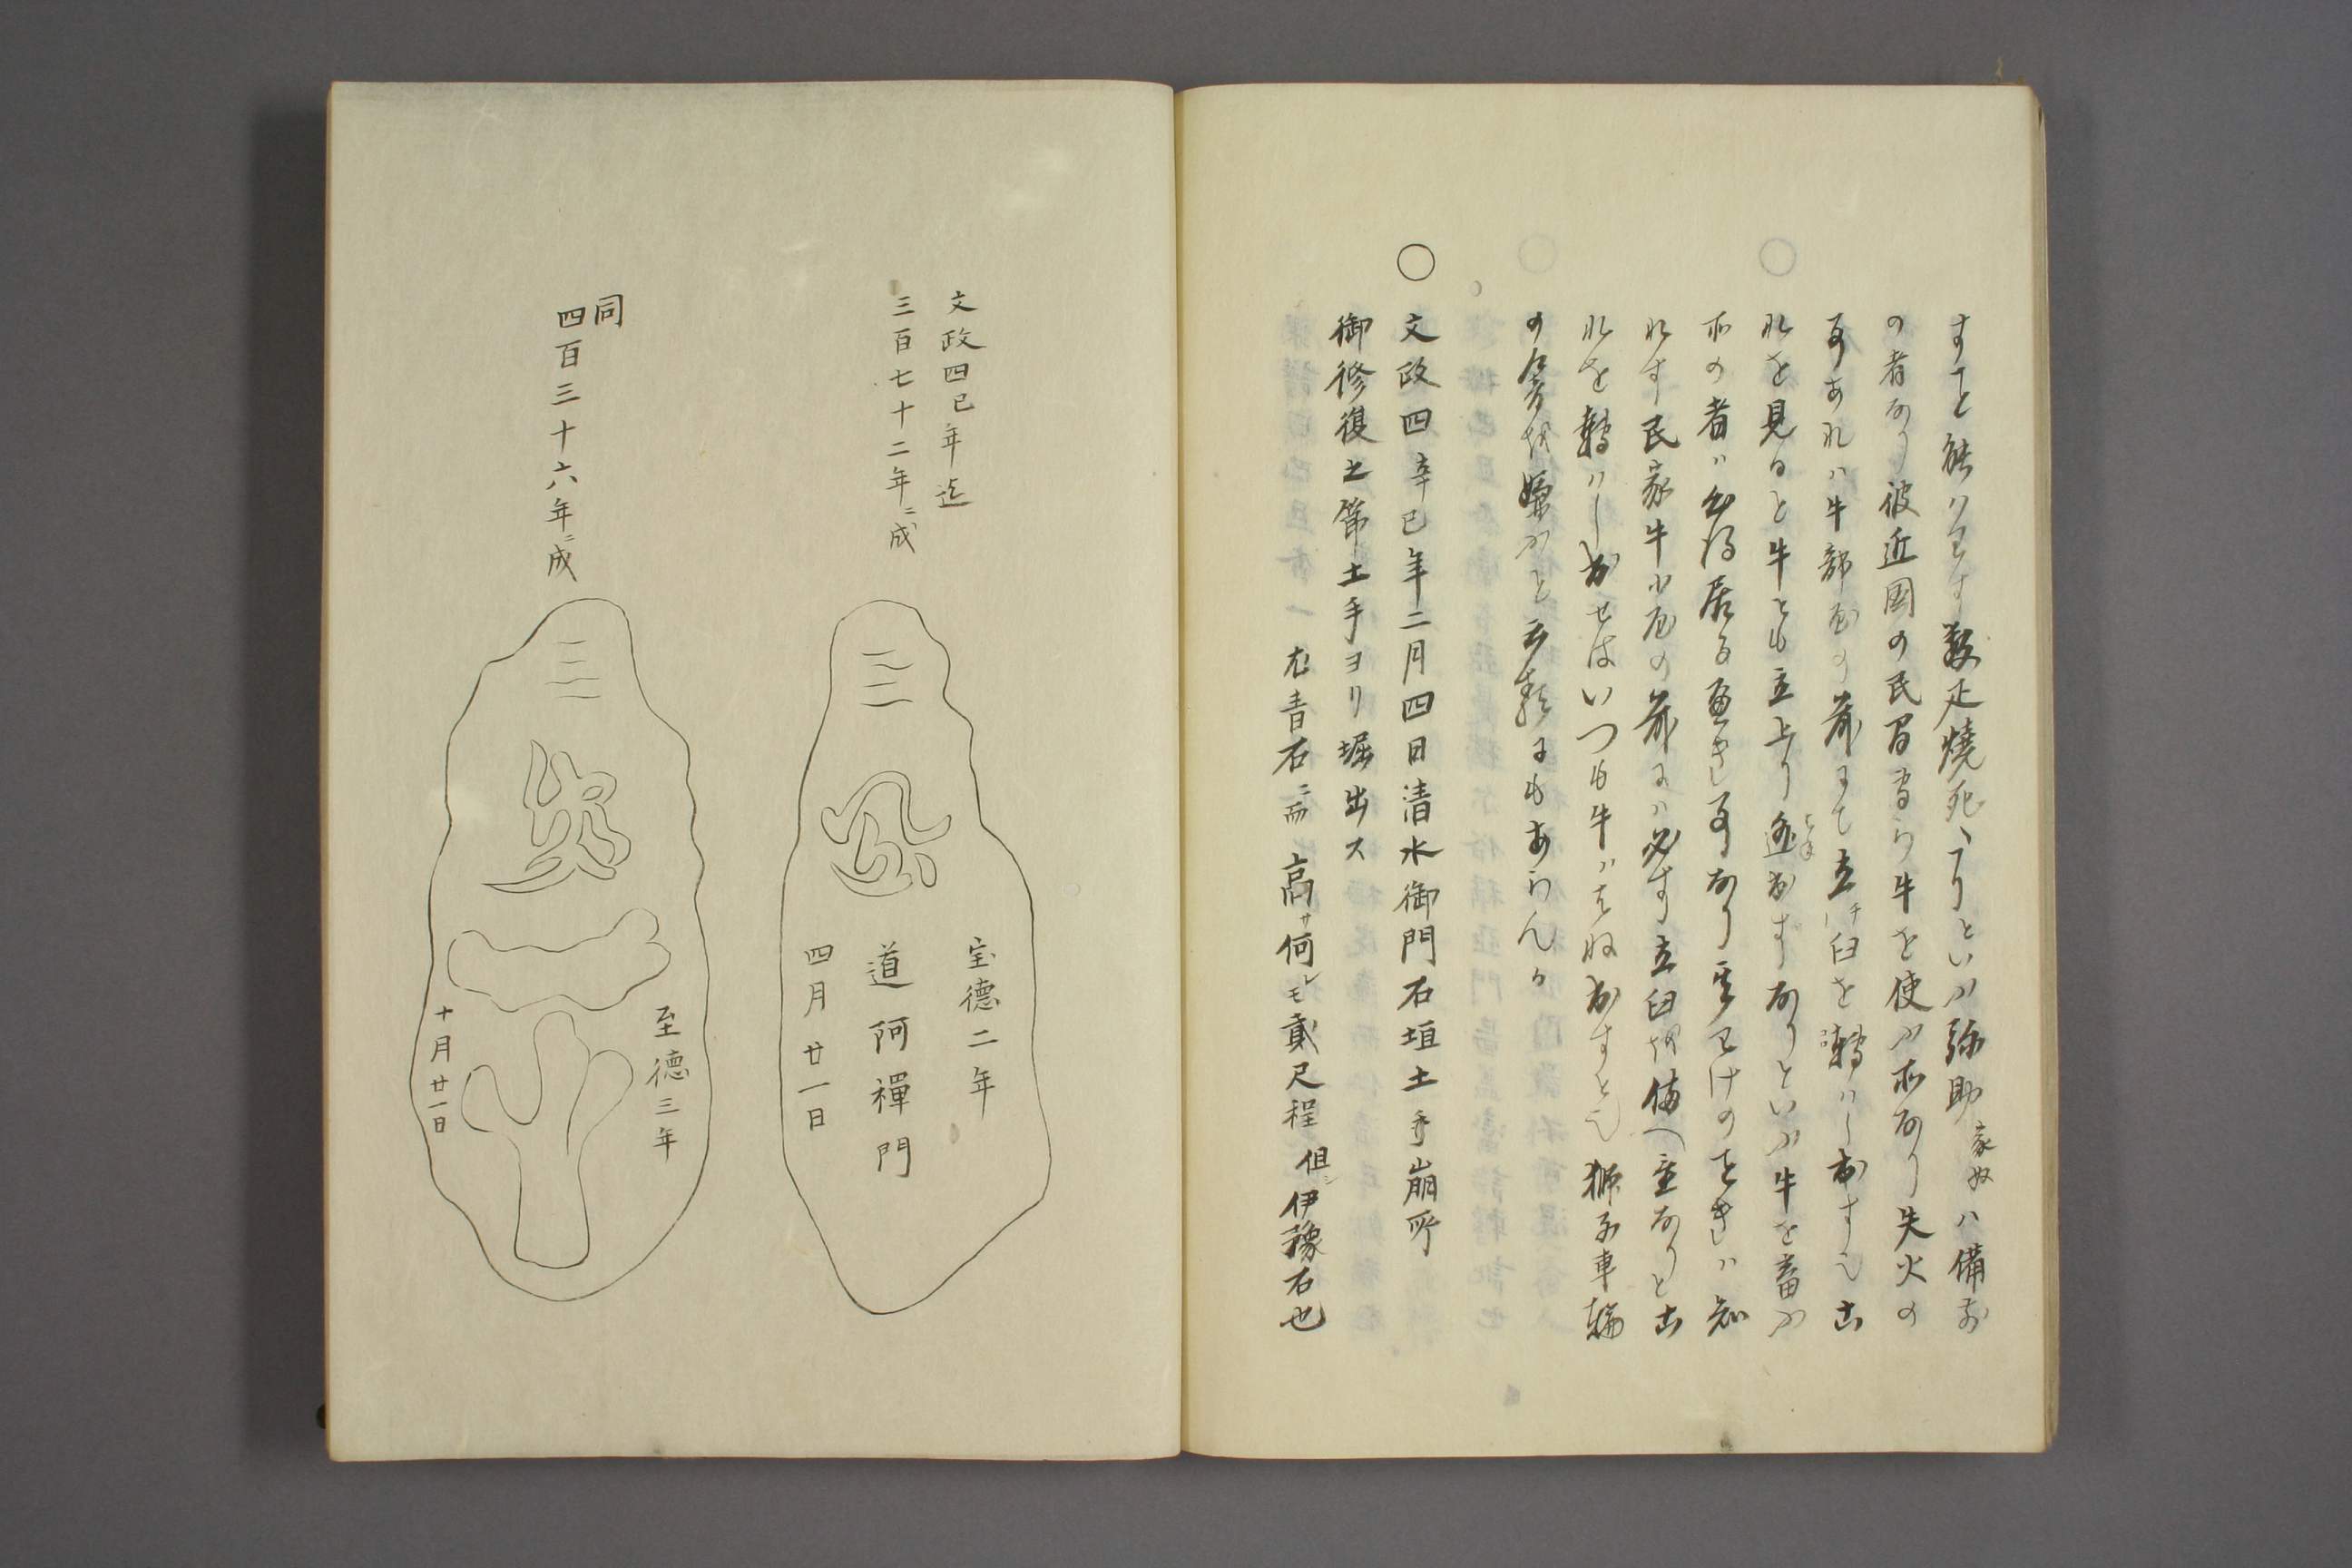 すこと能ハす数疋焼死、〻りといふ弥助家奴ハ備前
の者なり彼近国の民間専ら牛を使ふ所なり失火の
事あれハ牛部屋の前にて立チ臼を転ハし出す也古
れを見ると牛とも立上り逃出ずなりといふ牛を蓄ふ
所の者ハ心得居る可き事なり実にけのときハ知
れす民家牛小屋の前にハ必す立臼を備へ置なりと古
れを転ハし出せはいつも牛ハはね出すと也獅子車輪
の音を嫌ふと云類にもあらんか
○文政四辛巳年二月四日清水御門石垣土手崩所
御修復之節土手ヨリ堀出ス
右青石ニ而高サ何レモ貳尺程但シ伊豫石也
文政四巳年迄
三百七十二年ニ成
宝德二年
道阿禪門
四月廿一日
同
四百三十六年ニ成
至德三年
十月廿一日